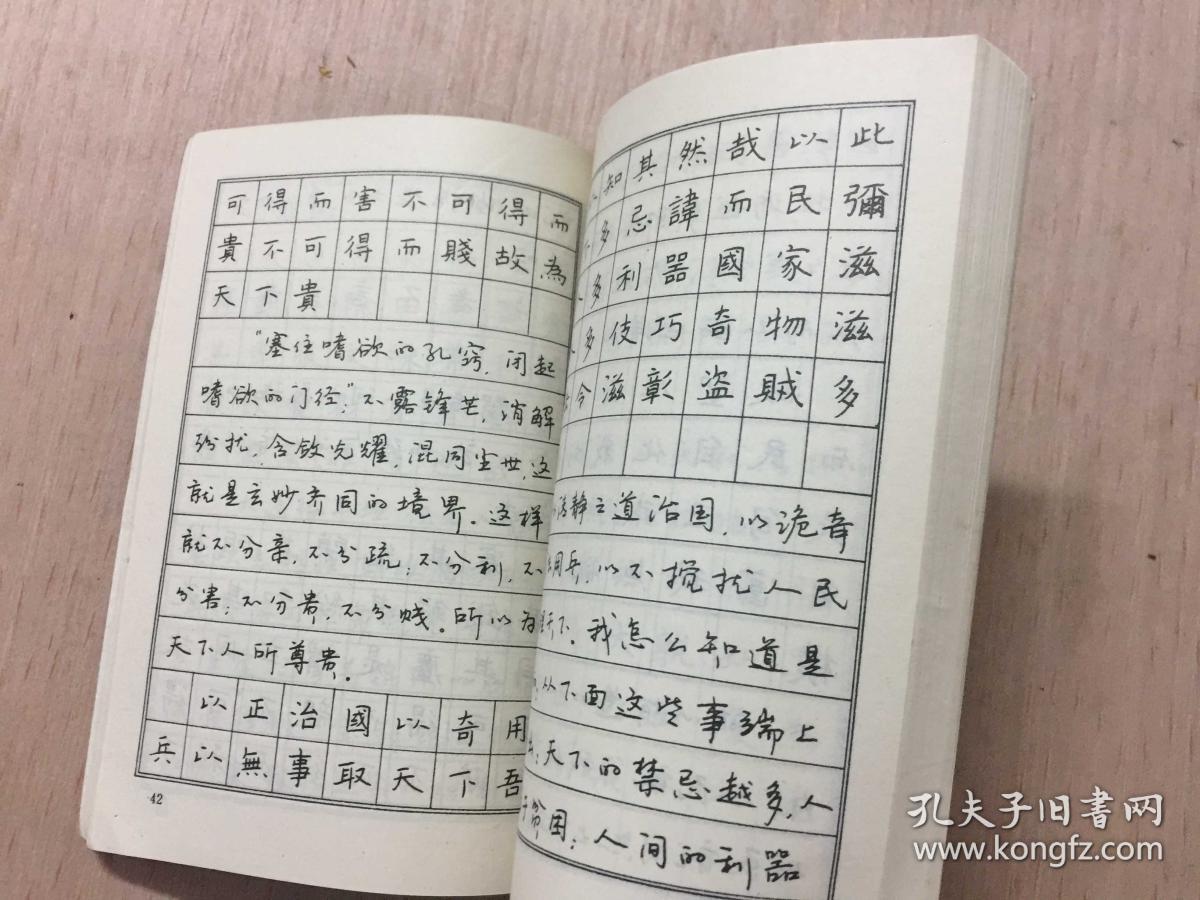 可得而害不可得而
貴不可得而賤故為
天下貴
“塞住嗜欲的孔窍,闭起
嗜欲的门径”,不露锋芒,消解
纷扰,含敛光耀,混同尘世,这
就是玄妙齐同的境界。这样
就不分亲,不分疏;不分利,不
分害;不分贵,不分贱。所以为
天下人所尊贵。
以正治國以奇用
兵以無事取天下吾
42
知其然哉以此
多忌諱而民彌
多利器國家滋
多伎巧奇物滋
令滋彰盗賊多
清静之道治国,以诡奇
用兵,以不搅扰人民
天下。我怎么知道是
从下面这些事端上
天下的禁忌越多,人
贫困;人间的利器
孔夫子旧書网
www.kongfz.com